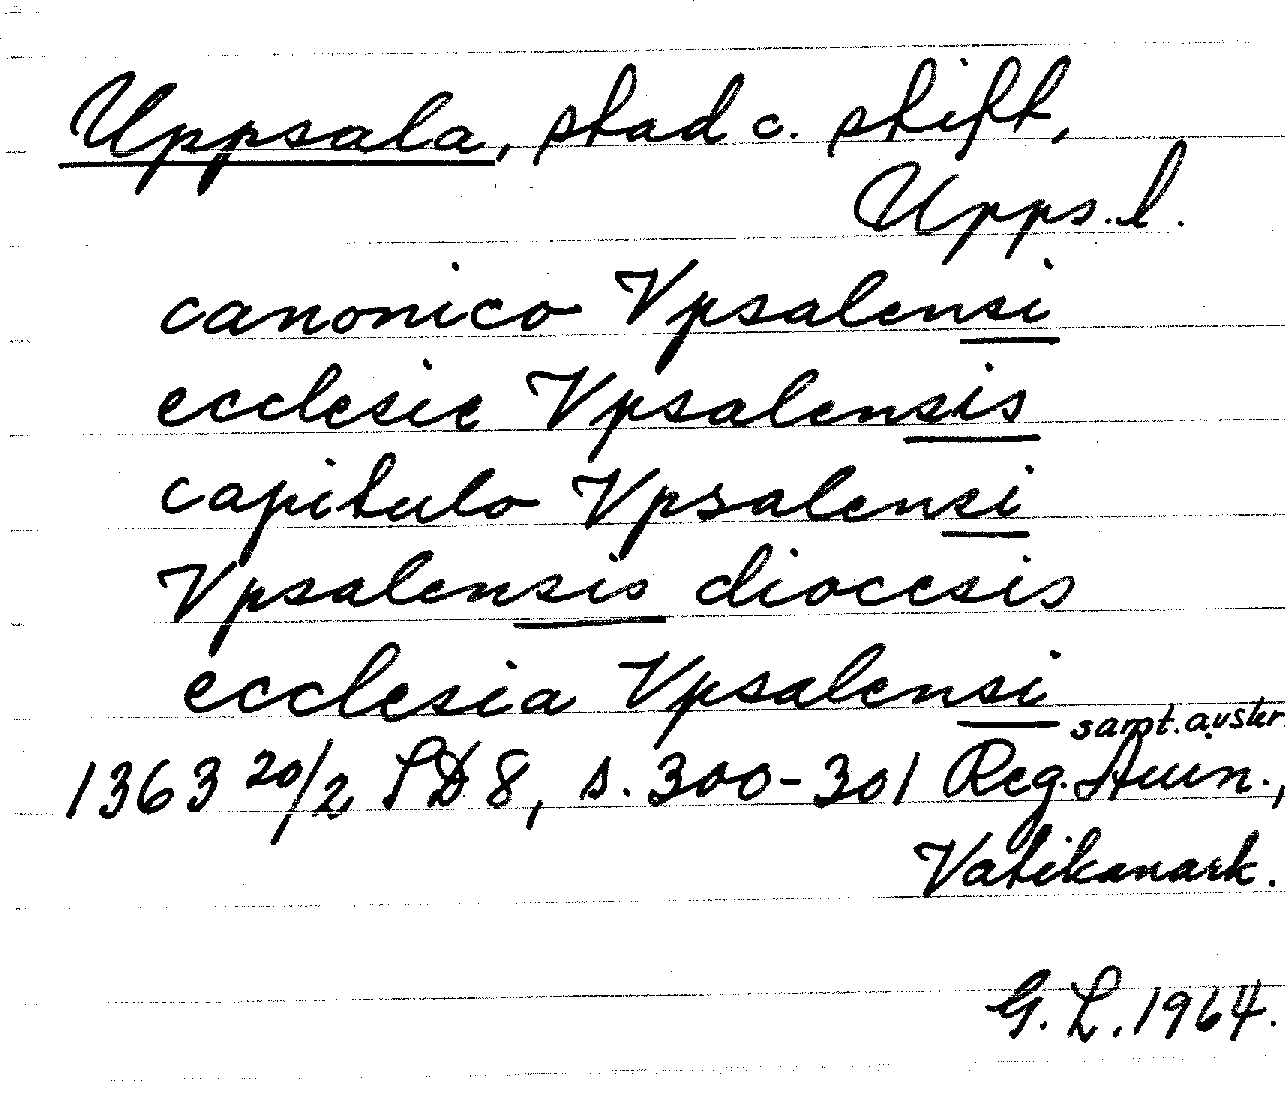 Uppsala, stad o. stift,
Upps. l.
canonico Vpsalensi
ecclesie Vpsalensis
capitulo Vpsalensi
Vpsalensis diocesis
ecclesia Vpsalensi
samt. avskr.
1363 20/2 SD 8, s. 300-301 Reg. Auin.,
Vatikanark.
G. L. 1964.